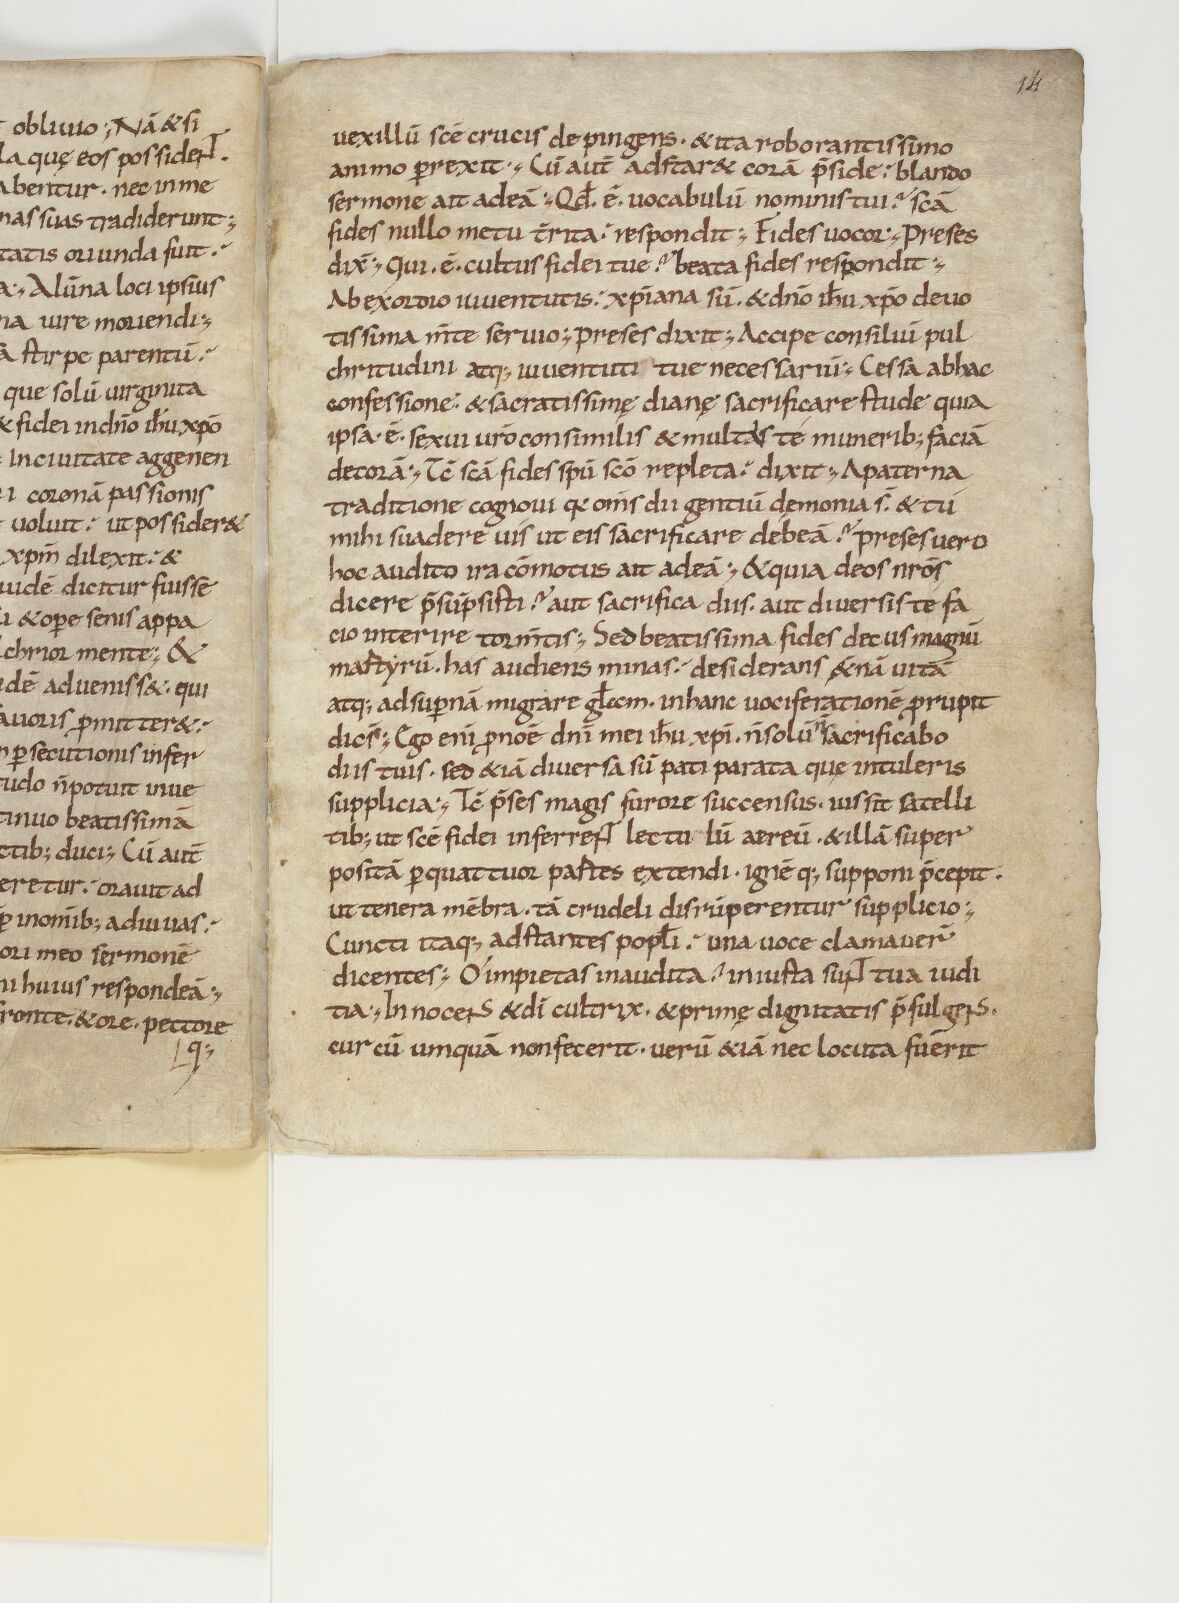 oblivio ; Nā & si
la quę eos possider̄t .
abentur . nec in me
nas suas tradiderunt ;
tatis oriunda fuit .
a ; Alūna loci ipsius
na uire moriendi ;
ā stirpe parentū .
que solū uirginita
& fidei in dn̄o ih̄u xp̄o
In ciuitate aggenen
coronā passionis
uoluit . ut possider&
xpm̄ dilexit . &
uidē dicitur fuisse
i & ope senis appa
chrior mente ; &
dē adueniss& . qui
auoris ꝑmitter& .
n ꝑsecutionis infer
udo n̄ potuit inue
tinuo beatissimā
ctib; duci ; Cū aut̄
eretur . orauit ad
in om̄ib; adiuuas .
ori meo sermonē
ni huius respondeā ;
fronte . & ore . pectore
14
uexillū scē crucis depingens . & ita roborantissimo
animo ꝑrexit ; Cū aut̄ adstar& corā p̄side . blando
sermone ait ad eā ; Qd̄ . ē . uocabulū nominis tui ? scā
fides nullo metu t̄rita . respondit ; Fides uocor ; Preses
dix̄ ; Qui . ē . cultus fidei tue ? beata fides respondit ;
Ab exordio iuuentutis . xp̄iana sū . & dn̄o ih̄u xp̄o deuo
tissima m̄te seruio ; Preses dixit ; Accipe consiliū pul
chritudini atq; iuuentuti tue necessariū ; Cessa ab hac
confessione . & sacratissimę dianę sacrificare stude quia
ipsa . ē . sexui ur̄o consimilis & multis te munerib; faciā
decorā ; Tc̄ scā fides spū scō repleta . dixit ; A paterna
traditione cognoui qꝛ om̄s dii gentiū demonia s̄ . & tu
mihi suadere uis ut eis sacrificare debeā ? Preses uero
hoc audito ira cōmotus ait ad eā ; & quia deos nrōs
dicere p̄sūpsisti ? aut sacrifica diis . aut diuersis te fa
cio interire torm̄tis ; Sed beatissima fides decus magnū
martyrū . has audiens minas . desiderans &nā uitā
atq; ad supnā migrare gl̄cm . in hanc uociferationē ꝓrupit
dicēs ; Ego eni ꝓ noē dn̄i mei ih̄u xp̄i . n̄ solū n̄ sacrificabo
diis tuis . sed &iā diuersa sū pati parata quę intuleris
supplicia ; Tc̄ p̄ses magis furore succensus . iussit satelli
tib; ut scē fidei inferrer̄t lectulū aereū . & illā super
positā ꝑ quattuor partes extendi . ignē q; supponi p̄cepit .
ut tenera mēbra . tā crudeli disrūperentur supplicio ;
Cuncti itaq; adstantes popl̄i . una uoce clamauer̄
dicentes ; O impietas inaudita ? iniusta sunt tua iudi
tia ; Innocens & dī cultrix . & primę dignitatis p̄fulgens .
cur cū umquā non fecerit . uerū &iā nec locuta fuerit